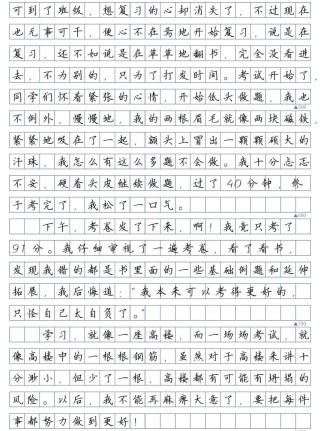 可到了班级，想复习的心却消失了，不过现在
也无事可干，便心不在焉地开始复习，说是在
复习，还不如说是在草草地翻书，完全没看进
去，不为别的，只为了打发时间。考试开始了，
同学们怀着紧张的心情，开始低头做题，我也
不例外，慢慢地，我的两根眉毛就像两块磁铁，
紧紧地吸在了一起，额头上冒出一颗颗硕大的
汗珠，我怎么有这么多题不会做。我十分忐忑
不安，硬着头皮继续做题，过了40分钟，终
于考完了，我松了一口气。
下午，考卷发了下来，啊！我竟只考了
91分。我仔细审视了一遍考卷，看了看书，
发现我错的都是书里面的一些基础例题和延伸
拓展，我后悔道：“我本来可以考得更好的，
只怪自己太自负了。”
学习，就像一座高楼，而一场场考试，就
像高楼中的一根根钢筋，虽然对于高楼来讲十
分渺小，但少了一根，高楼都有可能有坍塌的
风险。以后，我不能再麻痹大意了，要把每件
事都努力做到更好！